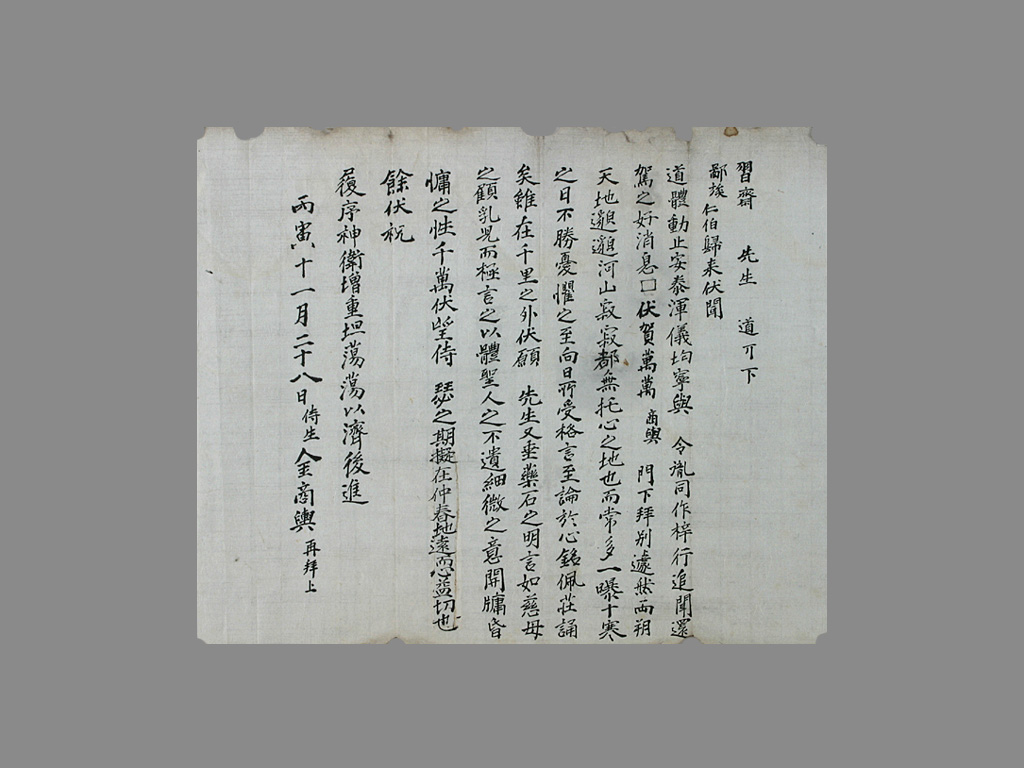 習齋 先生 道可下
鄙族仁伯歸来伏聞
道體動止安泰渾儀均寧與 令胤同作梓行追聞還
駕之好消息口伏賀萬萬 商輿 門下拜别遽然两朔
天地邈邈河山寂寂都無托心之地也而常多一曝十寒
之日不勝憂懼之至向日所受格言至論於心銘佩莊誦
矣雖在千里之外伏願 先生又垂藥石之明言如慈母
之顧乳児而極言之以體聖人之不遺細微之意開牖昏
慵之性千萬伏望侍 瑟之期擬在仲春地遠而心益切也
餘伏祝
履序神衛增重坦蕩蕩以濟後進
丙寅十一月二十八日侍生金商輿再拜上